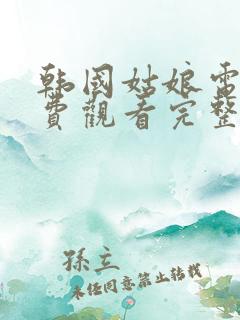 韩國姑娘電
費觀看完整
孫立
未经同意禁止转载